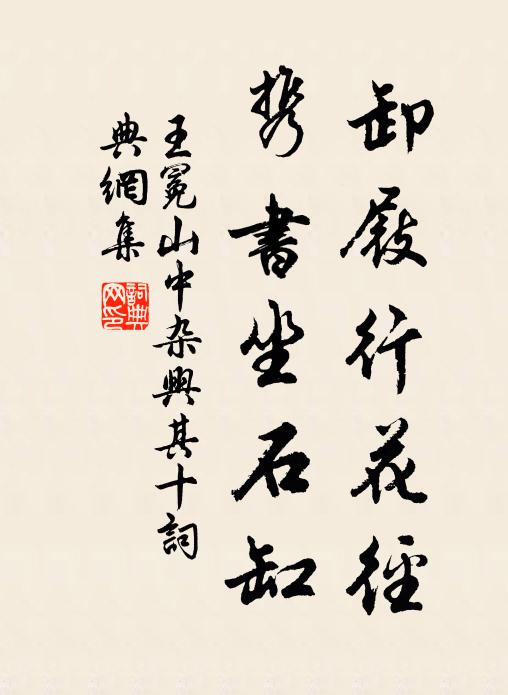 卸屐行花徑
攜書坐石缸
王冕山中杂興其十詞
典網集
詞典网印